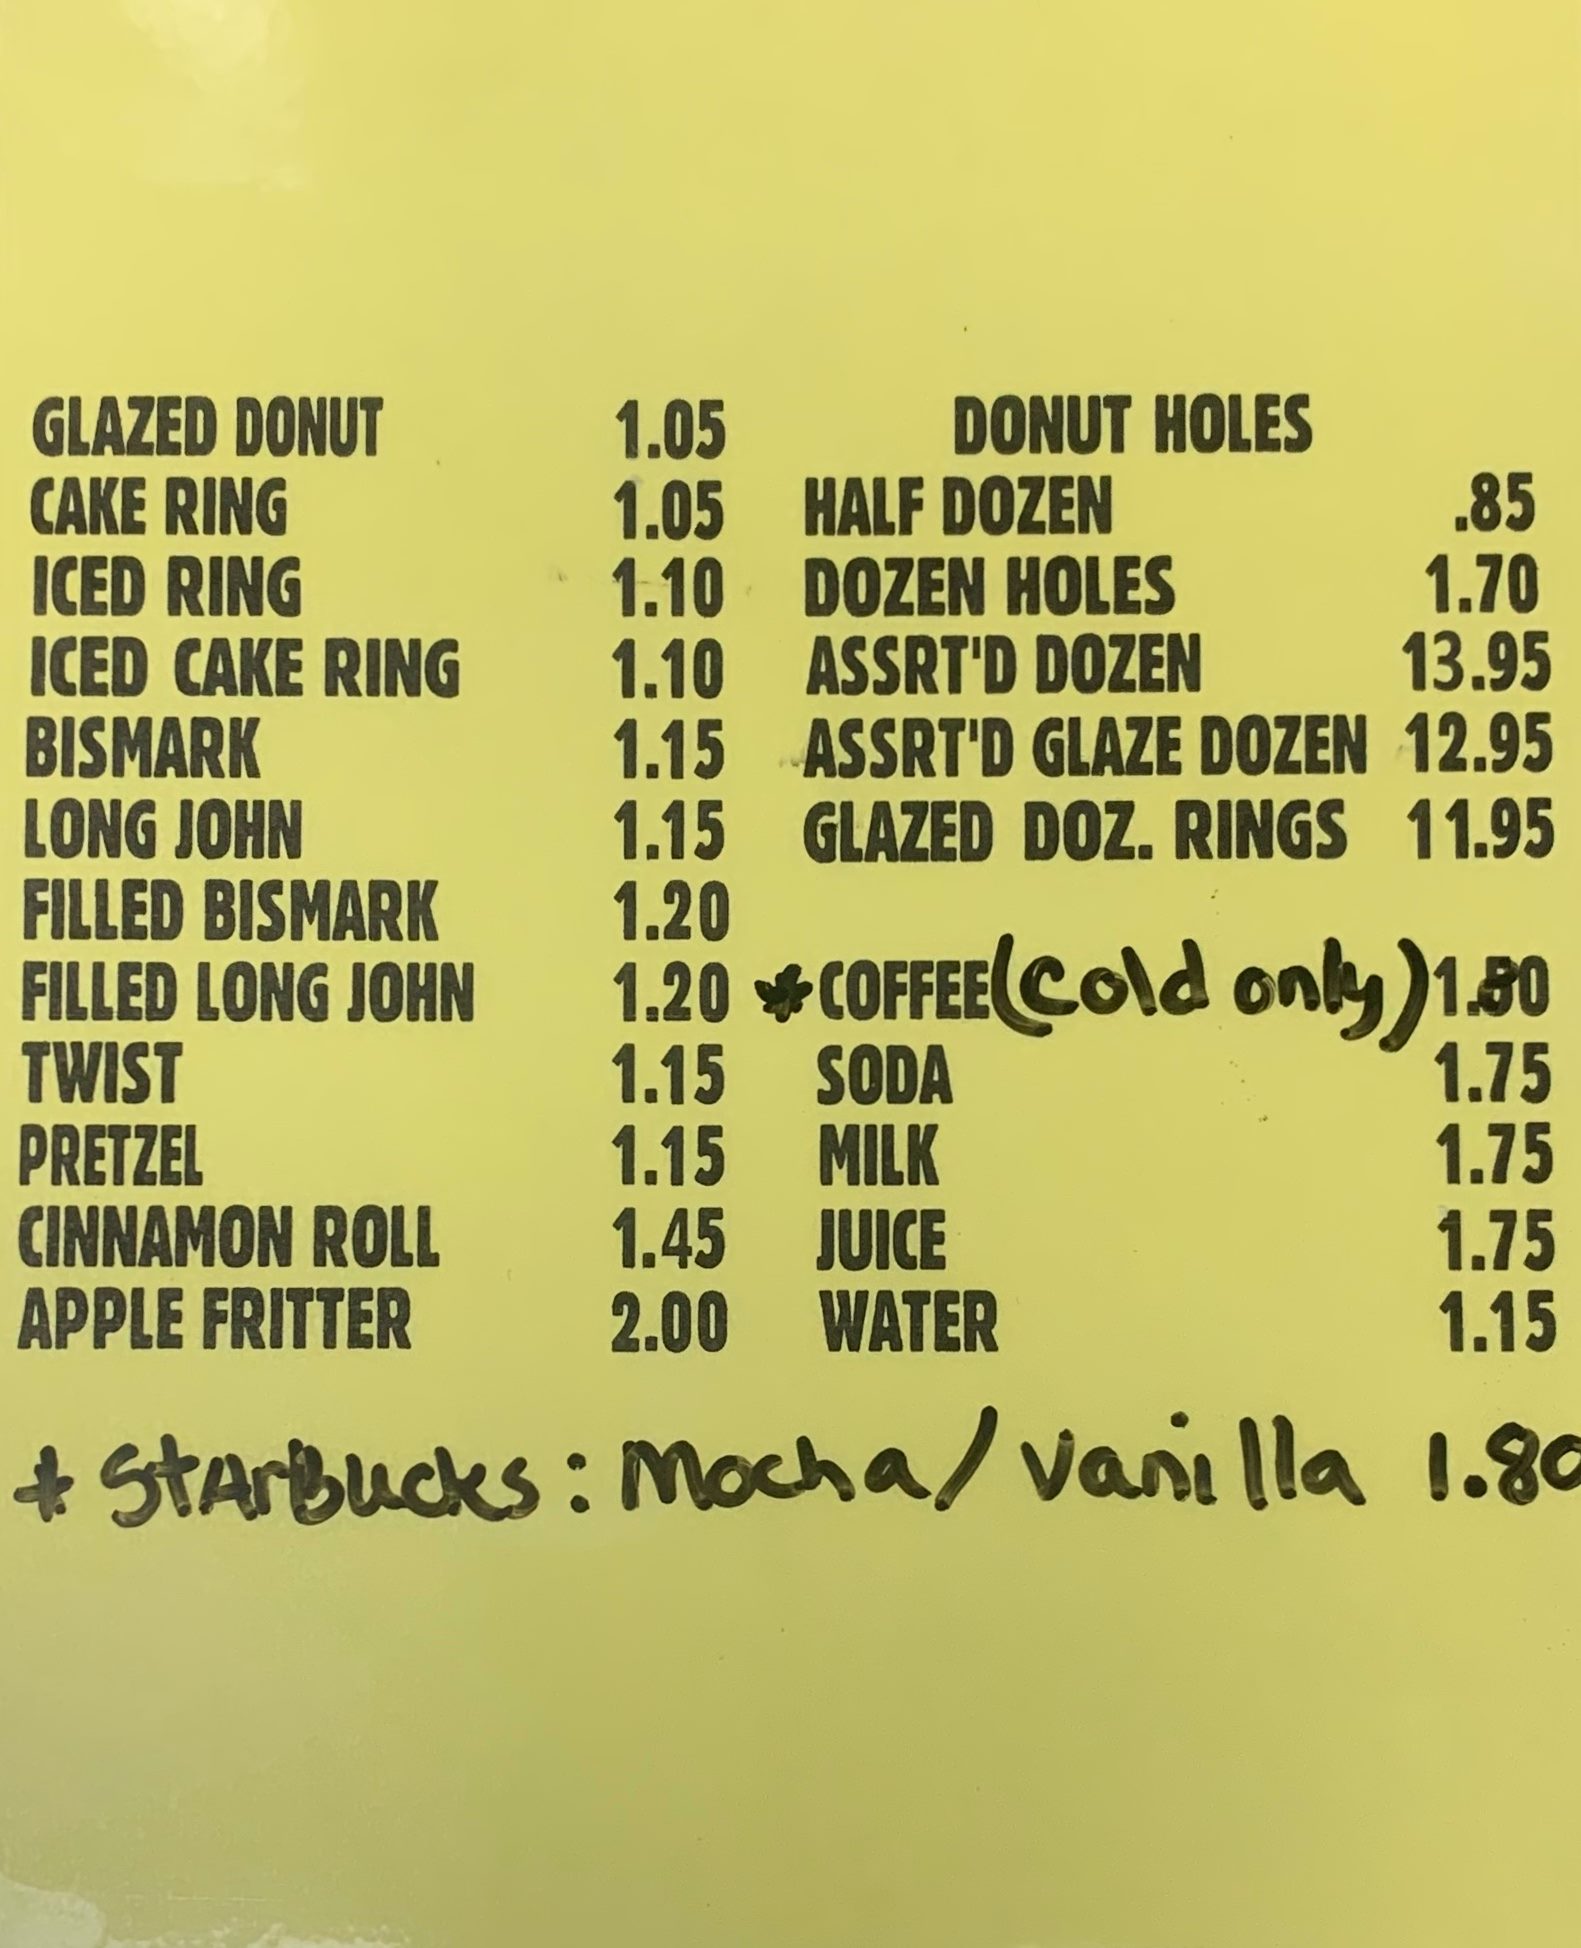 GLAZED DONUT 1.05
CAKE RING 1.05
ICED RING 1.10
ICED CAKE RING 1.10
BISMARK 1.15
LONG JOHN 1.15
FILLED BISMARK 1.20
FILLED LONG JOHN 1.20
TWIST 1.15
PRETZEL 1.15
CINNAMON ROLL 1.45
APPLE FRITTER 2.00
DONUT HOLES
HALF DOZEN .85
DOZEN HOLES 1.70
ASSRT'D DOZEN 13.95
ASSRT'D GLAZE DOZEN 12.95
GLAZED DOZ. RINGS 11.95
* COFFEE (cold only)
SODA 1.75
MILK 1.75
JUICE 1.75
WATER 1.15
* StArBucks: Mocha/Vanilla 1.80